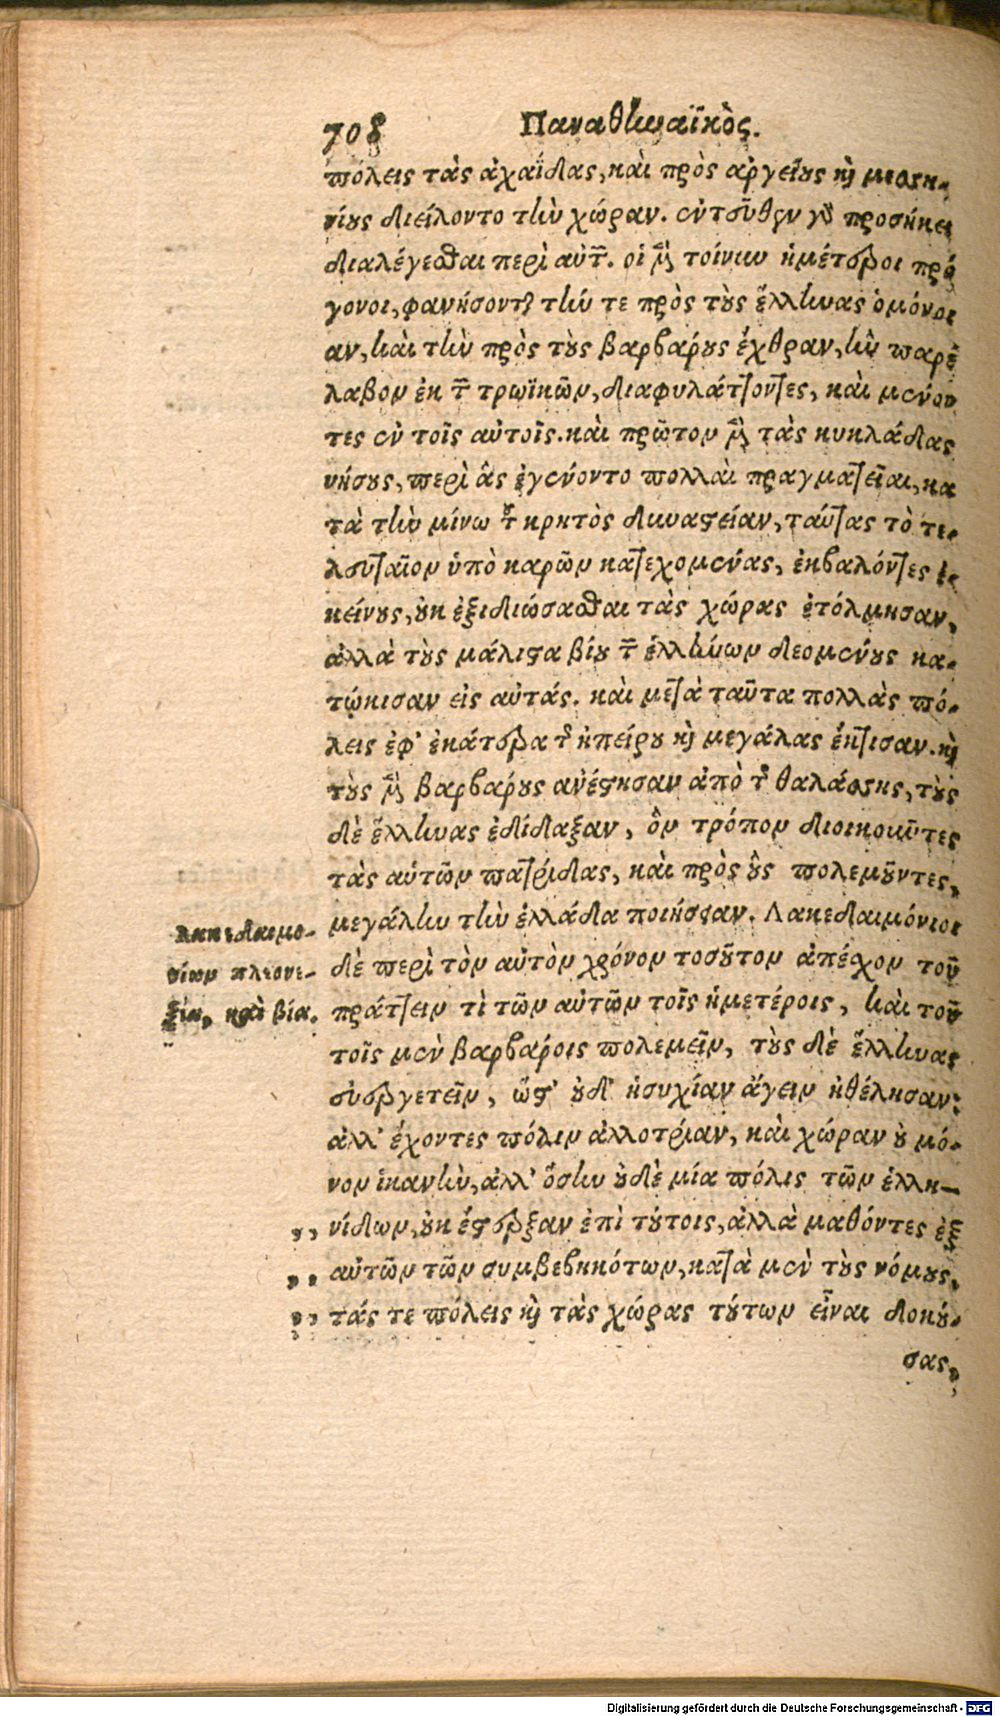 708 Παναθηναϊκὸς.
πόλεις τὰς ἀχαΐδας, καὶ πρὸς ἀργείους καὶ μεσση-
νίους διείλοντο τὴν χώραν. ἐντεῦθεν γὰρ προσήκει
διαλέγεσθαι περὶ αὐτῶν. οἱ μὲν τοίνυν ἡμέτεροι πρό
γονοι, φανήσονται τήν τε πρὸς τοὺς ἕλληνας ὁμόνοι
αν, καὶ τὴν πρὸς τοὺς βαρβάρους ἔχθραν, ἣν παρέ
λαβον ἐκ τῶν τρωϊκῶν, διαφυλάττοντες, καὶ μένον
τες ἐν τοῖς αὐτοῖς. καὶ πρῶτον μὲν τὰς κυκλάδας
νήσους, περὶ ἃς ἐγένοντο πολλαὶ πραγματεῖαι, κα
τὰ τὴν μίνω τοῦ κρητὸς δυναστείαν, ταύτας τὸ τε-
λευταῖον ὑπὸ καρῶν κατεχομένας, ἐκβαλόντες ἐ-
κείνους, οὐκ ἐξιδιώσασθαι τὰς χώρας ἐτόλμησαν,
ἀλλὰ τοὺς μάλιστα βίου τῶν ἑλλήνων δεομένους κα-
τῴκισαν εἰς αὐτάς. καὶ μετὰ ταῦτα πολλὰς πό-
λεις ἐφ' ἑκάτερα τῆς ἠπείρου καὶ μεγάλας ἔκτισαν. καὶ
τοὺς μὲν βαρβάρους ἀνέστησαν ἀπὸ τῆς θαλάσσης, τοὺς
δὲ ἕλληνας ἐδίδαξαν, ὃν τρόπον διοικοῦντες
τὰς αὑτῶν πατρίδας, καὶ πρὸς οὓς πολεμοῦντες,
μεγάλην τὴν ἑλλάδα ποιήσειαν. Λακεδαιμόνιοι
δὲ περὶ τὸν αὐτὸν χρόνον τοσοῦτον ἀπέσχον τοῦ
πράττειν τὶ τῶν αὐτῶν τοῖς ἡμετέροις, καὶ τοῦ
τοῖς μὲν βαρβάροις πολεμεῖν, τοὺς δὲ ἕλληνας
εὐεργετεῖν, ὥστ' οὐδ' ἡσυχίαν ἄγειν ἠθέλησαν:
ἀλλ' ἔχοντες πόλιν ἀλλοτρίαν, καὶ χώραν οὐ μό-
νον ἱκανὴν, ἀλλ' ὅσην οὐδὲ μία πόλις τῶν ἑλλη-
,, νίδων, οὐκ ἔστερξαν ἐπὶ τούτοις, ἀλλὰ μαθόντες ἐξ
,, αὐτῶν τῶν συμβεβηκότων, κατὰ μὲν τοὺς νόμους,
,, τάς τε πόλεις καὶ τὰς χώρας τούτων εἶναι δοκού-
σας,
Λακεδαιμο-
νίων πλεονε-
ξία, καὶ βία.
Digitalisierung gefördert durch die Deutsche Forschungsgemeinschaft - DFG